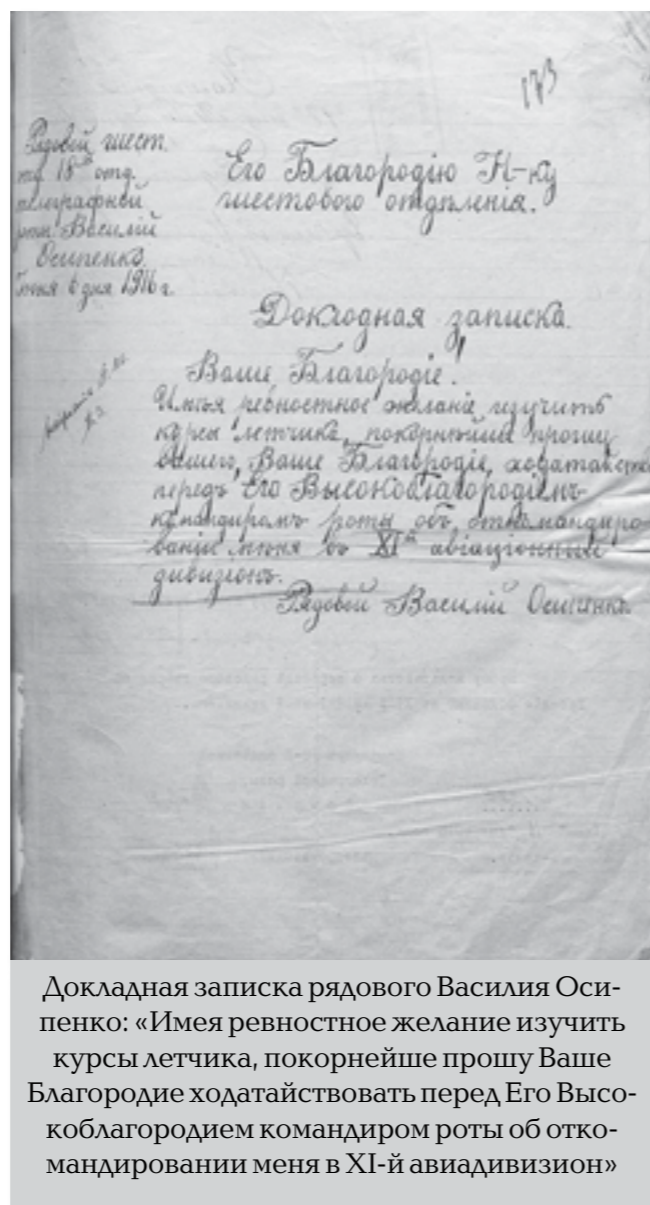 173
Рядовой шест.
18го отд.
телеграфной
роты Василій
Осипенко.
Іюня 6 дня 1916 г.
Его Благородію Н-ку
шестового отдѣленія.
Докладная записка.
Ваше Благородіе!
Имѣя ревностное желаніе изучить
курсы летчика, покорнѣйше прошу
Вашего, Ваше Благородіе, ходатайства
передъ Его Высокоблагородіемъ
командиромъ роты объ откомандиро-
ваніи меня въ XIй авіаціонный
дивизіонъ.
Рядовой Василій Осипенко.
Докладная записка рядового Василия Оси-
пенко: «Имея ревностное желание изучить
курсы летчика, покорнейше прошу Ваше
Благородие ходатайствовать перед Его Высо-
коблагородием командиром роты об отко-
мандировании меня в XI-й авиадивизион»